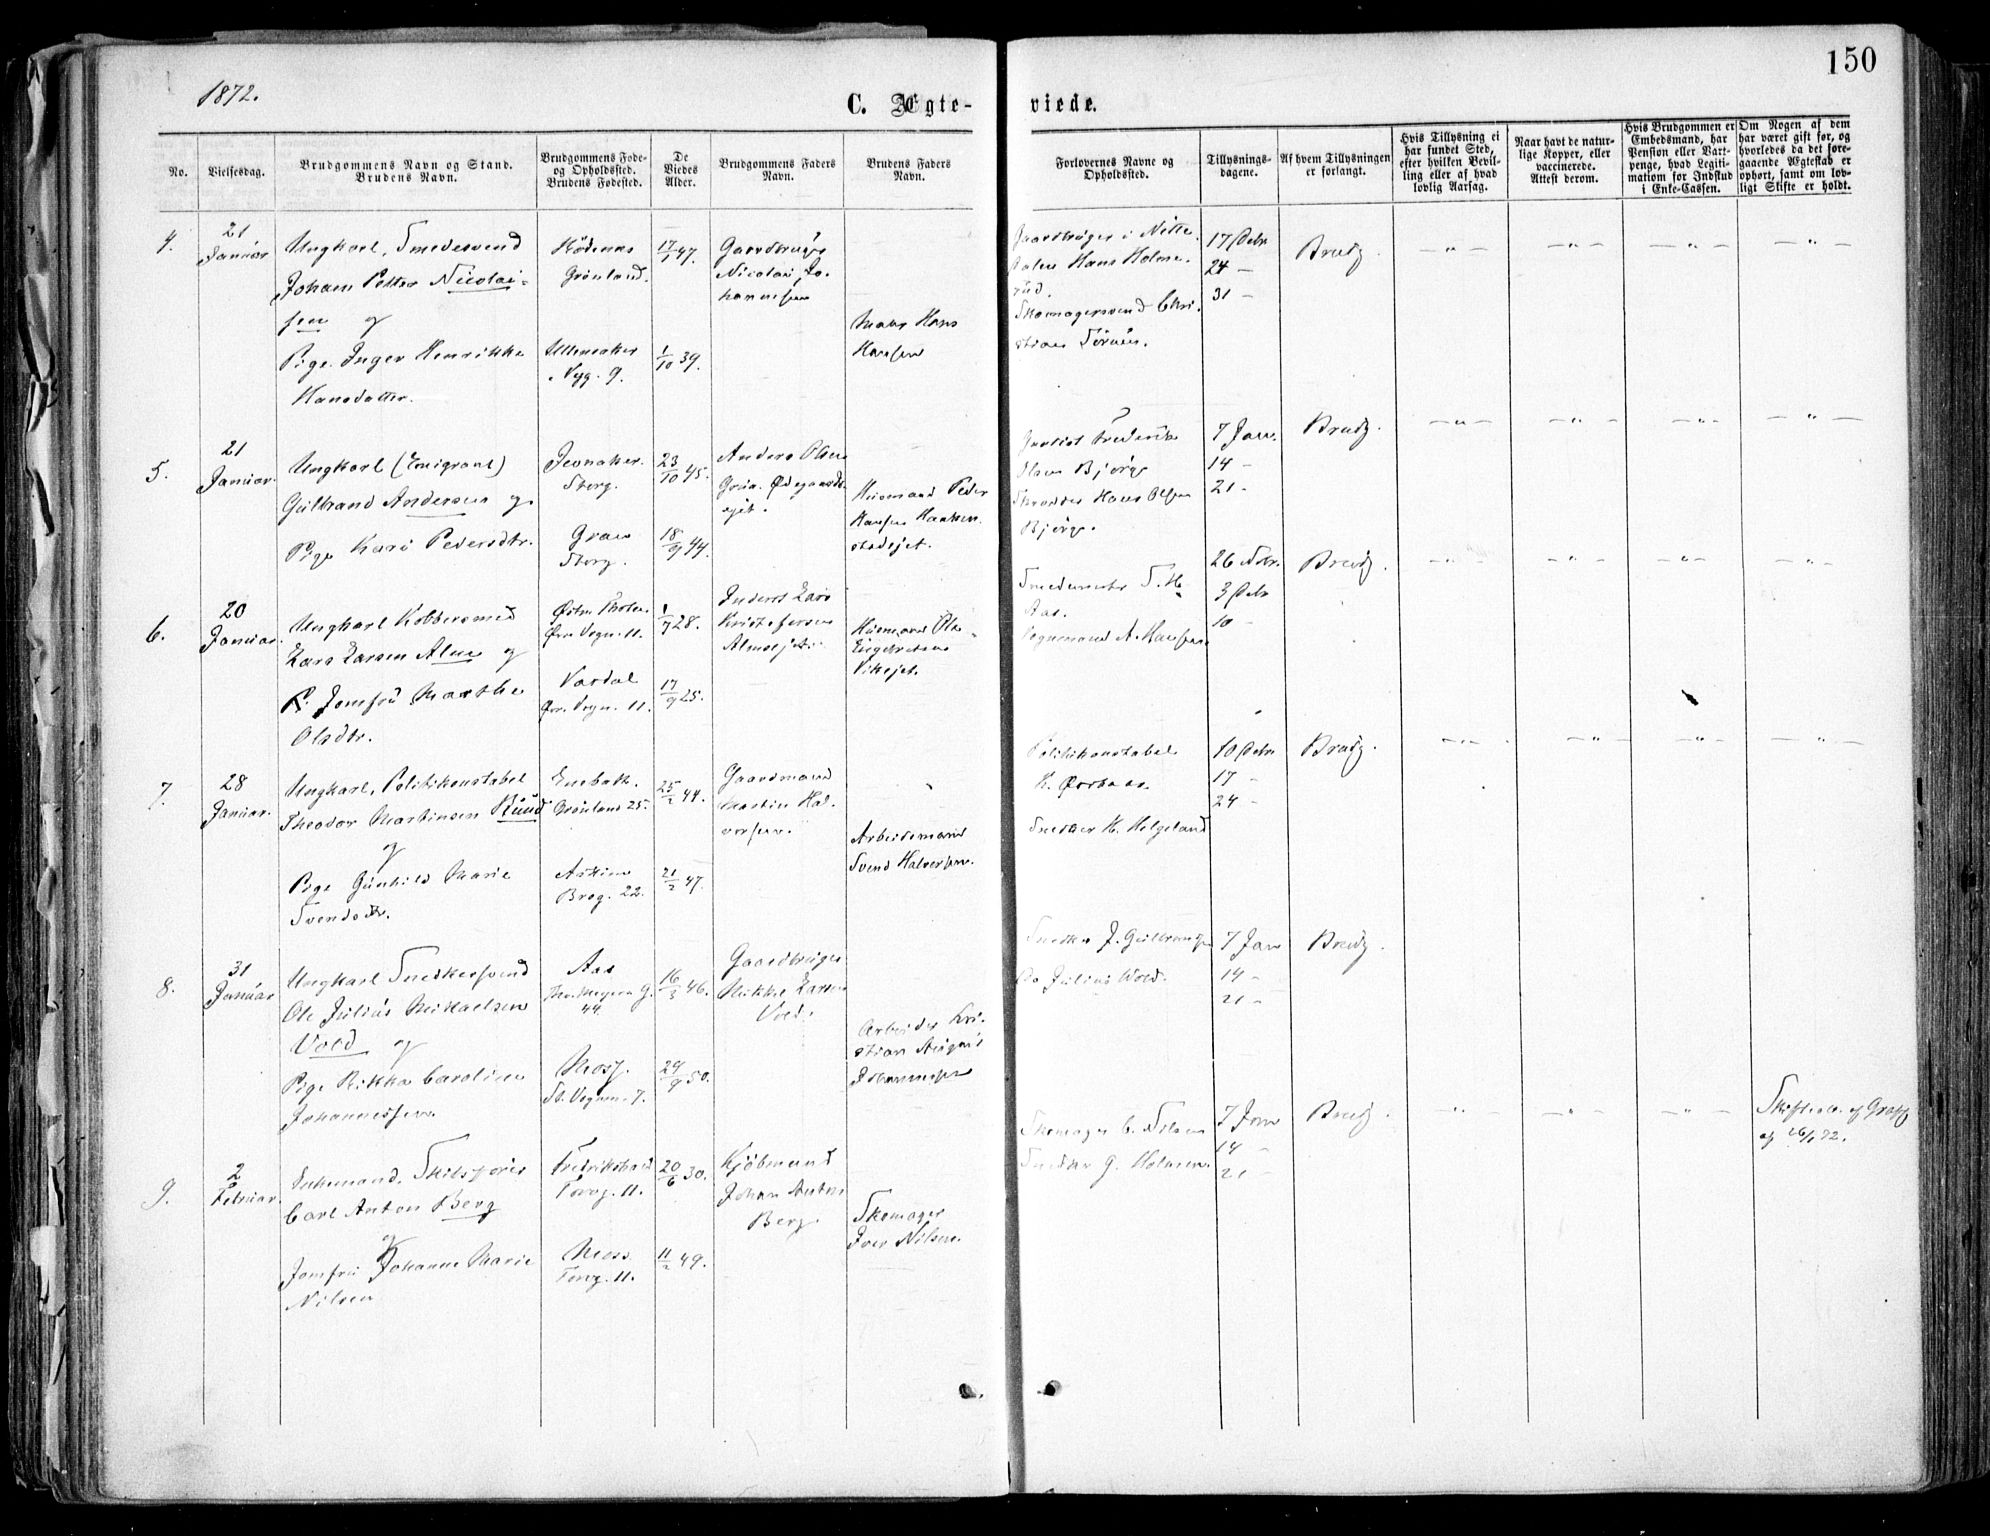 150
1872.
C. Ægte-
viede.
No.
Vielsesdag.
Brudgommens Navn og Stand.
Brudens Navn.
Brudgommens Føde-
og Opholdssted.
Brudens Fødested.
De
Viedes
Alder.
Brudgommens Faders
Navn.
Brudens Faders
Navn.
Forlovernes Navne og
Opholdssted.
Tillysnings-
dagene.
Af hvem Tillysningen
er forlangt.
Hvis Tillysning ei
har fundet Sted,
efter hvilken Bevil-
ling eller af hvad
lovlig Aarsag.
Naar havt de natur-
lige Kopper, eller
vaccinerede.
Attest derom.
Hvis Brudgommen er
Embedsmand, har
Pension eller Vart-
penge, hvad Legiti-
mation for Indskud
i Enke-Cassen.
Om Nogen af dem
har været gift før, og
hvorledes da det fore-
gaaende Ægteskab er
ophørt, samt om lov-
ligt Skifte er holdt.
4.
21
Januar
Ungkarl, Smedesvend
Johan Petter Nicolai-
sen og
Pige Inger Henrikke
Hansdatter.
Rødenes
Grønland.
Ullensaker
Nyg. 9.
17/7 47.
1/10 39.
Gaardbruger
Nicolai Jo-
hannesen
Hans
Hansen
Gaardbruger i Nitte-
dalen Hans Holme-
rud.
Skomagersvend Chri-
stian
17 Debr
24 –
31 –
Brudg.
5.
21
Januar.
Ungkarl (Emigrant)
Gulbrand Andersen og
Pige Kari Pedersdtr.
Jevnaker.
Storg.
Gran
Storg.
23/10 45.
18/9 44.
Anders Olsen
Husmand Peder
Hansen
Frederik
Olsen Bjørge
Skrædder Hans Olsen
Bjørge.
7 Jan.
14 –
21 –
Brudg.
6.
20
Januar.
Ungkarl Kobbersmed
Lars Larsen Alm og
P. Jomfru Marthe
Olsdtr.
Østre Thoten.
Øvr. Vogn. 11.
Vardal
Øvr. Vogn. 11.
1/7 28.
17/9 25.
Inderst Lars
Kristofersen
Almsejet.
Husmand Ole
Engebretsen
Smedemester T. H.
Aas.
Vognmand A. Hansen
26 Nobr.
3 Debr
10 –
Brudg.
7.
28
Januar.
Ungkarl, Politikonstabel
Theodor Martinsen Ruud
og
Pige Gunhild Marie
Svendsdtr.
Enebak.
Grønland 25.
Askim
Brog. 22.
25/2 44.
21/2 47.
Gaardmand
Martin Hal-
vorsen.
Arbeidsmand
Svend Halvorsen.
Politikonstabel
K. Ørbæk.
Snedker H. Helgeland
10 Debr
17 –
24 –
Brudg.
8.
31
Januar
Ungkarl Snedkersvend
Ole Julius Mikaelsen
Vold og
Pige Rikka Caroline
Johannessen.
Aas
44
Moss.
7.
16/3 46.
29/9 50.
Gaardbruger
Mikkel Larsen
Vold.
Arbeider Kri-
stian August
Johannesen
Snedker J. Gulbrandsen
Do Julius Wold.
7 Jan
14 –
21 –
Brudg.
9.
2
Februar.
Enkemand, Skibsfører
Carl Anton Berg
og
Jomfru Johanne Marie
Nilsen
Fredrikshald
Torvg. 11.
Moss
Torvg. 11.
20/6 30.
11/2 49.
Kjøbmand
Johan Anton
Berg.
Skomager
Iver Nilsen.
Skomager C. Nilsen
Snedker G. Holmsen.
7 Jan
14 –
21 –
Brudg.